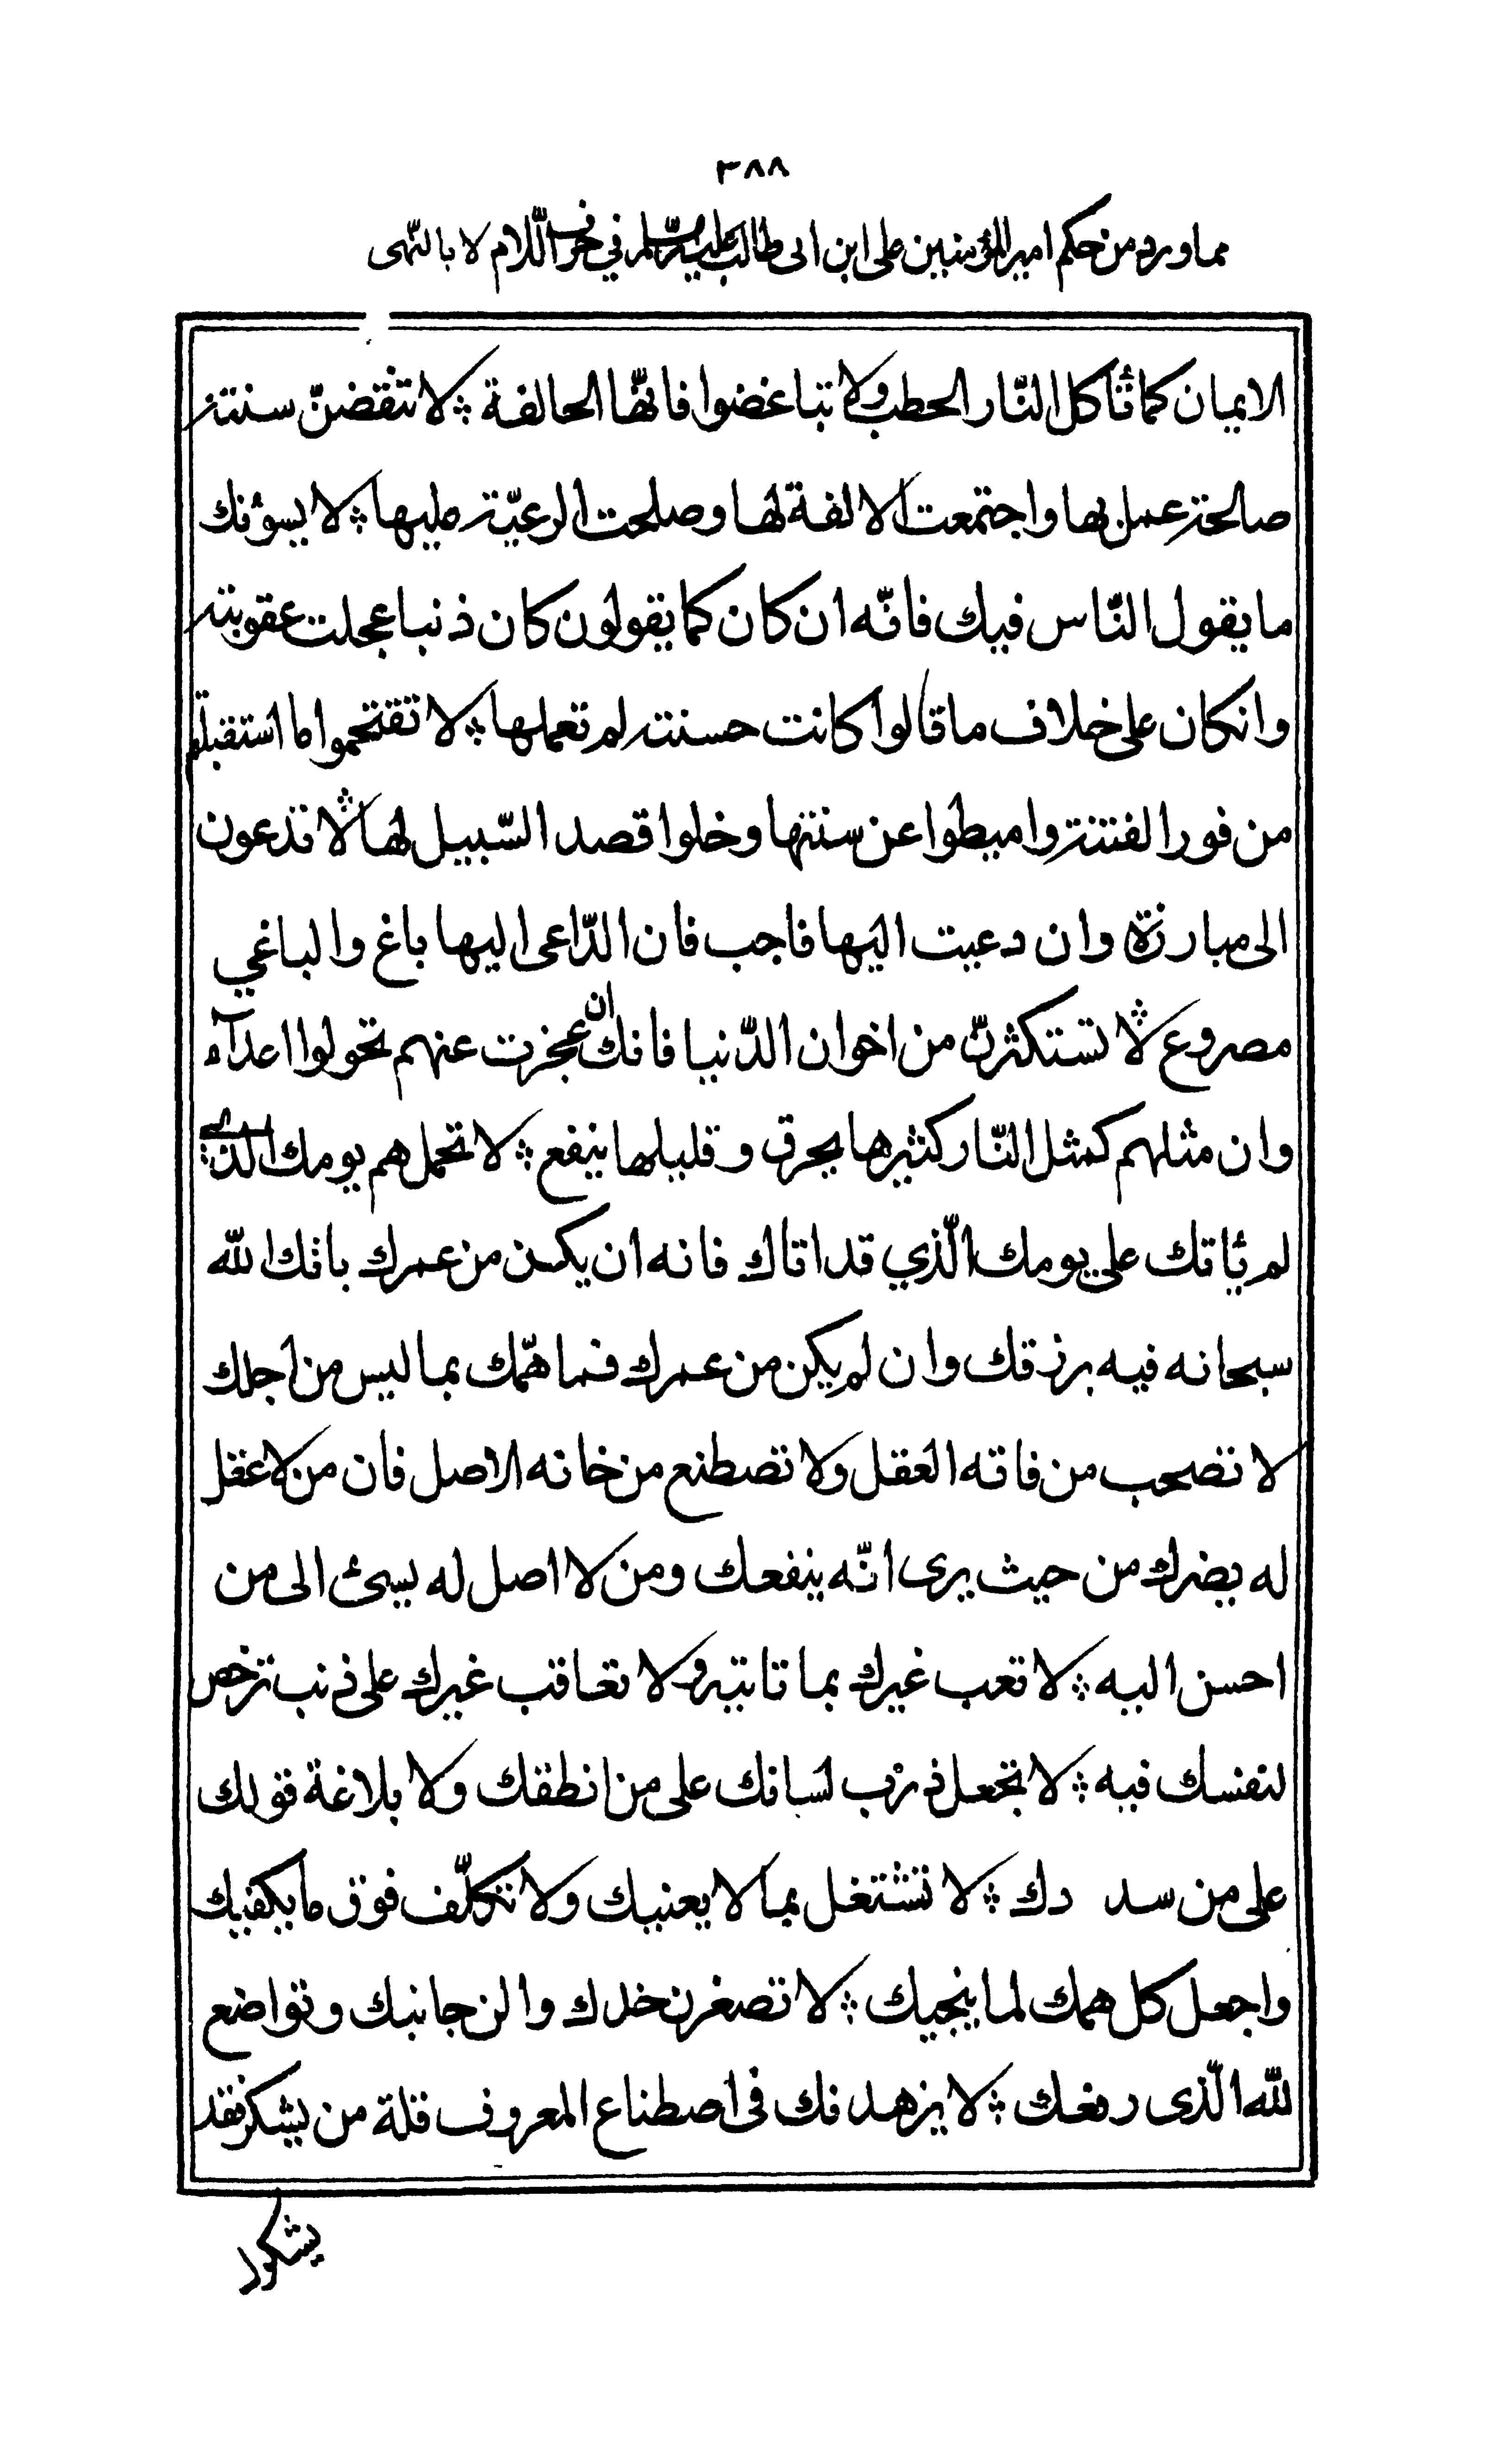 ٣٨٨
مما ورد من حكم امير المؤمنين على ابن ابى طالب عليه السّلم في حرف اللّام لا بالنّهى
الايمان كما تأكل النّار الحطب ولا تباغضوا فانّها الحالفة ؞ لا تنقضنّ سنة
صالحة عمل بها واجتمعت الالفة لها وصلحت الرعيّة عليها ؞ لا يسؤنك
ما يقول النّاس فيك فانّه ان كان كما يقولون كان ذنبا عجلت عقوبته
وانكان على خلاف ما قالوا كانت حسنة لم تعملها ؞ لا تقتحموا ما استقبلتم
من فور الفتنة واميطوا عن سنتها وخلوا قصد السّبيل لها ؞ لا تدعون
الى مبارزة وان دعيت اليها فاجب فان الدّاعى اليها باغ والباغي
مصروع ؞ لا تستكثرنّ من اخوان الدّنيا فانك ان عجزت عنهم تحولوا اعدآء
وان مثلهم كمثل النّار كثيرها يحرق وقليلها ينفع ؞ لا تحمل هم يومك الّذي
لم يأتك على يومك الّذي قد اتاك فانه ان يكن من عمرك ياتك الله
سبحانه فيه برزقك وان لم يكن من عمرك فما همّك بما ليس من اجلك
لا تصحب من فاته العقل ولا تصطنع من خانه الاصل فان من لا عقل
له يضرك من حيث يرى انّه ينفعك ومن لا اصل له يسئ الى من
احسن اليه ؞ لا تعب غيرك بما تاتيه ولا تعاقب غيرك على ذنب ترخص
لنفسك فيه ؞ لا تجعل ذرب لسانك على من انطقك ولا بلاغة قولك
على من سد دك ؞ لا تشتغل بما لا يعنيك ولا تتكلّف فوق ما يكفيك
واجعل كل همك لما ينجيك ؞ لا تصغرن خدك والن جانبك وتواضع
لله الّذى رفعك ؞ لا يزهدنك فى اصطناع المعروف قلة من يشكره فقد
يشكرك